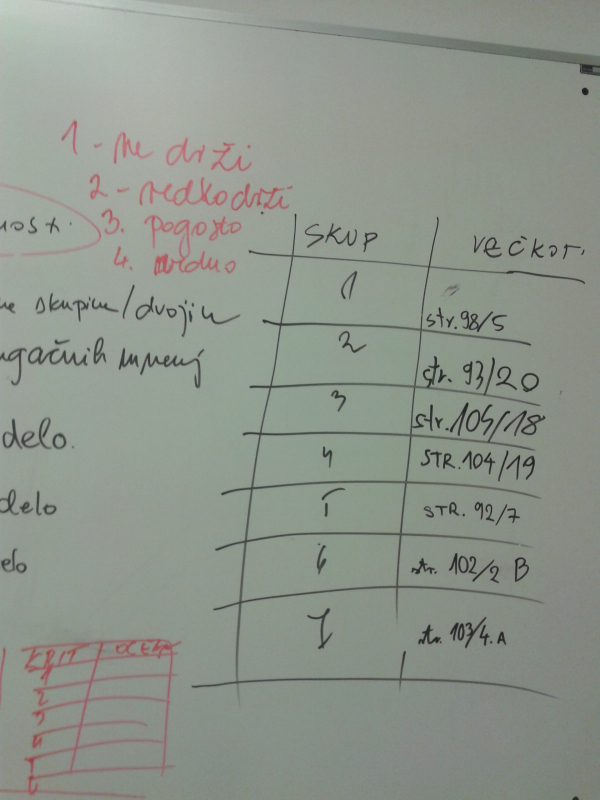 1 - ne drži
2 - redko drži
3. pogosto
4. vedno
nost.
ne skupine/dvojin
gačnih mnenj
delo.
delo
elo
SKUP VEČKOT.
1 str. 98/5
2 str. 93/20
3 str. 105/18
4 STR. 104/19
5 STR. 92/7
6 str. 102/2 B
7 str. 103/4. A
KRIT OCENA
1
2
3
4
5
6